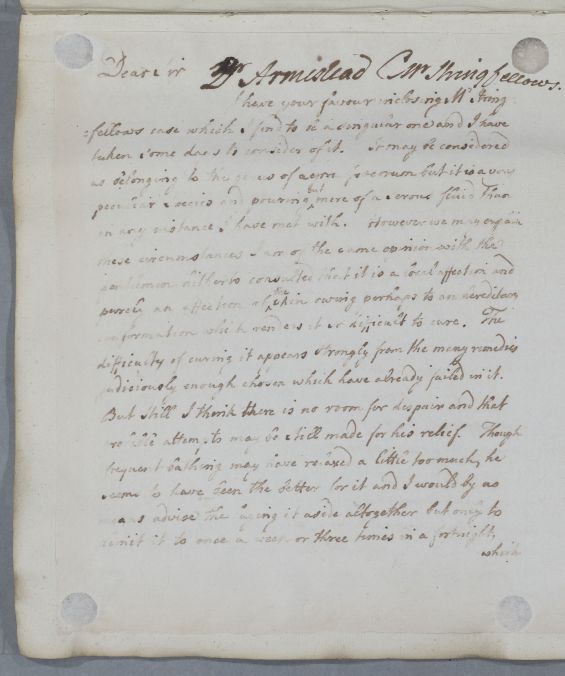 Dear Sir Dr Armistead C Mr Stringfellows.
I have your favour inclosing Mr String-
fellows case which I find to be a singular one and I have
taken some days to consider of it. It may be considered
as belonging to the genus of but it is a very
peculiar species and pouring out more of a serous fluid than
in any instance I have met with. However we may explain
these circumstances I am of the same opinion with the
gentlemen hitherto consulted that it is a local affection and
purely an affection of the skin owing perhaps to an hereditary
conformation which renders it so difficult to cure. The
difficulty of curing it appears strongly from the many remedies
judiciously enough chosen which have already failed in it.
But still I think there is no room for despair and that
probable attempts may be still made for his relief. Though
frequent bathing may have relaxed a little too much, he
seems to have been the better for it and I would by no
means advise the laying it aside altogether but only to
limit it to once a week or three times in a fortnight,
which